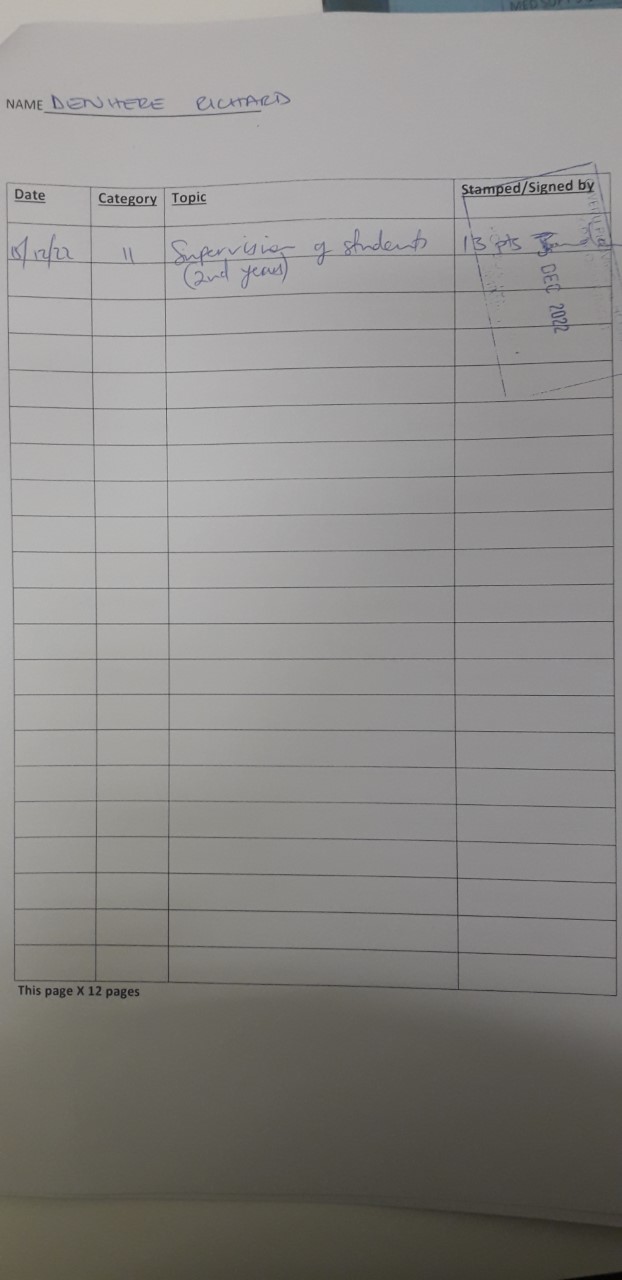 MED SUP
NAME DENHERE RICHARD
Date Category Topic Stamped/Signed by
15/12/22 11 Supervision of students 13 pts
(2nd years)
DEC 2022
This page X 12 pages